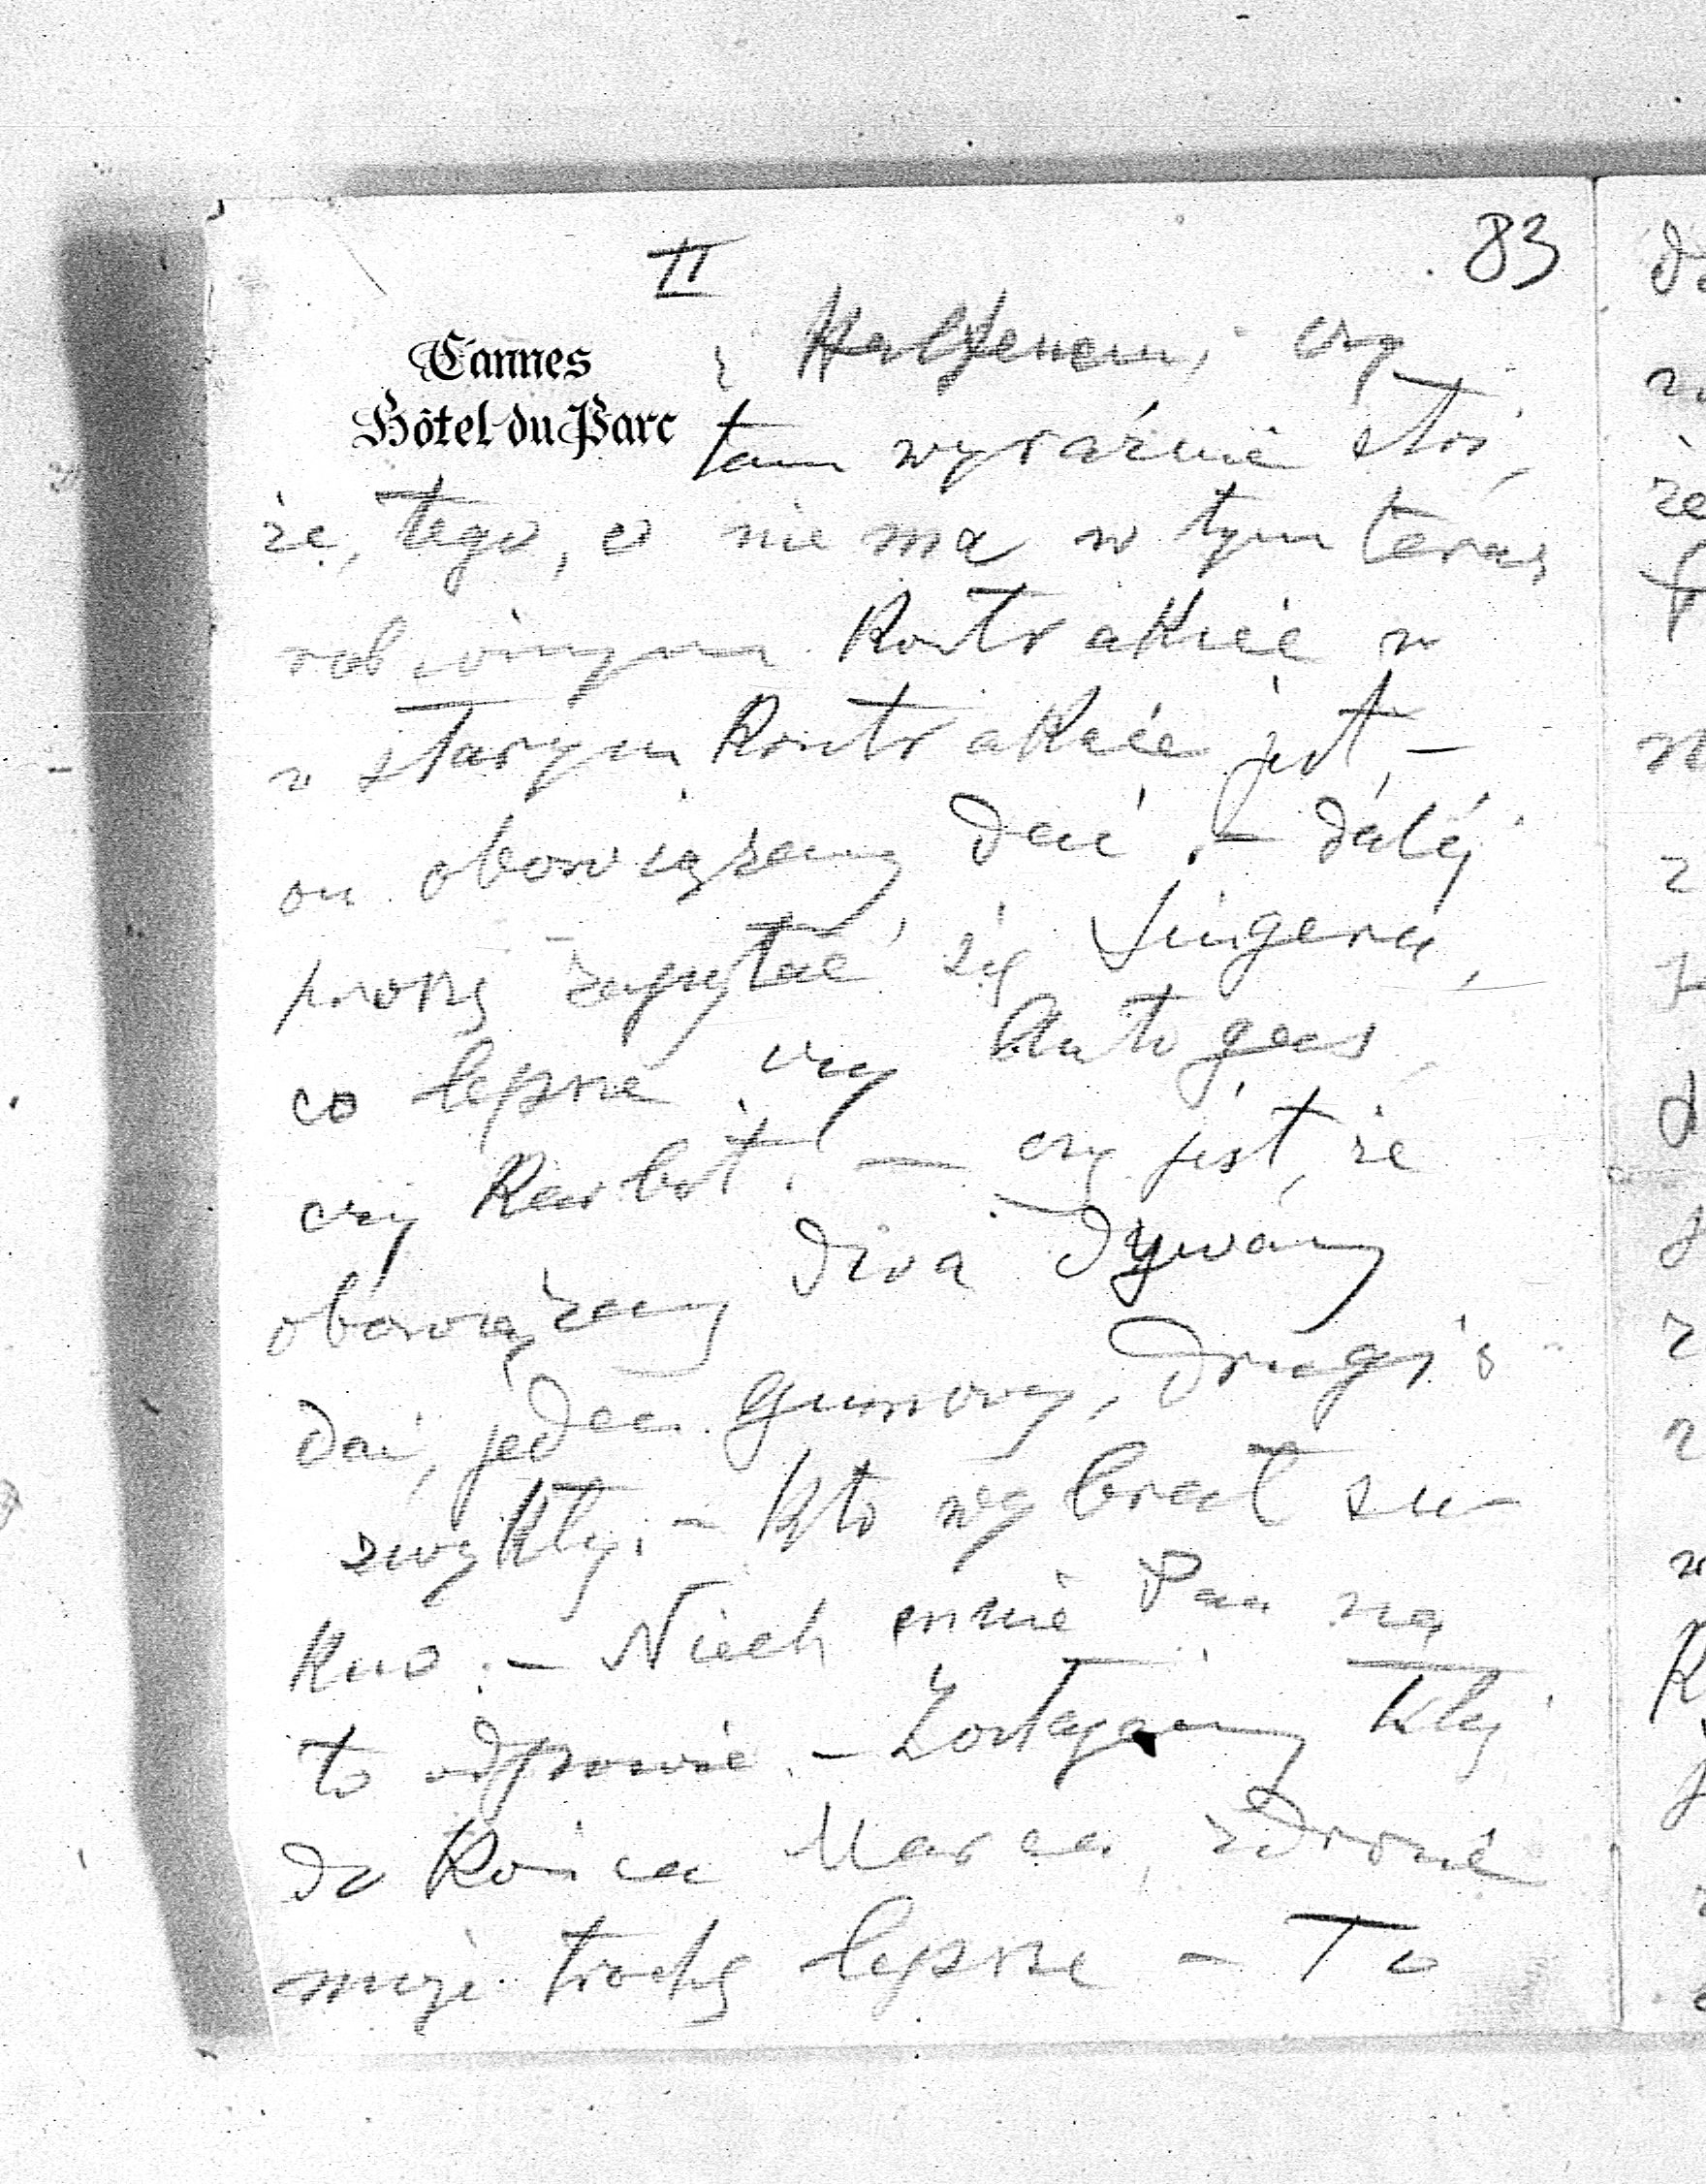 II
83
Cannes
Hôtel du Parc
i czy
tam wyraźnie stoi,
że, tego, co nie ma w tym teraz
robionym Kontrakcie w
w starym Kontrakcie jest, –
on obowiązany dać. – daléj
proszę zapytać się Singera,
co lepsze czy Autogaes,
czy Karbit. – czy jest, że
obowiązany dwa dywany
dać, jeden gumowy, drugi
zwykły. – Kto wybrał su-
kno. – Niech mnie Pan na
to odpowie. – Zostajemy tutej
do Końca Marca, zdrowie
moje trochę lepsze – To